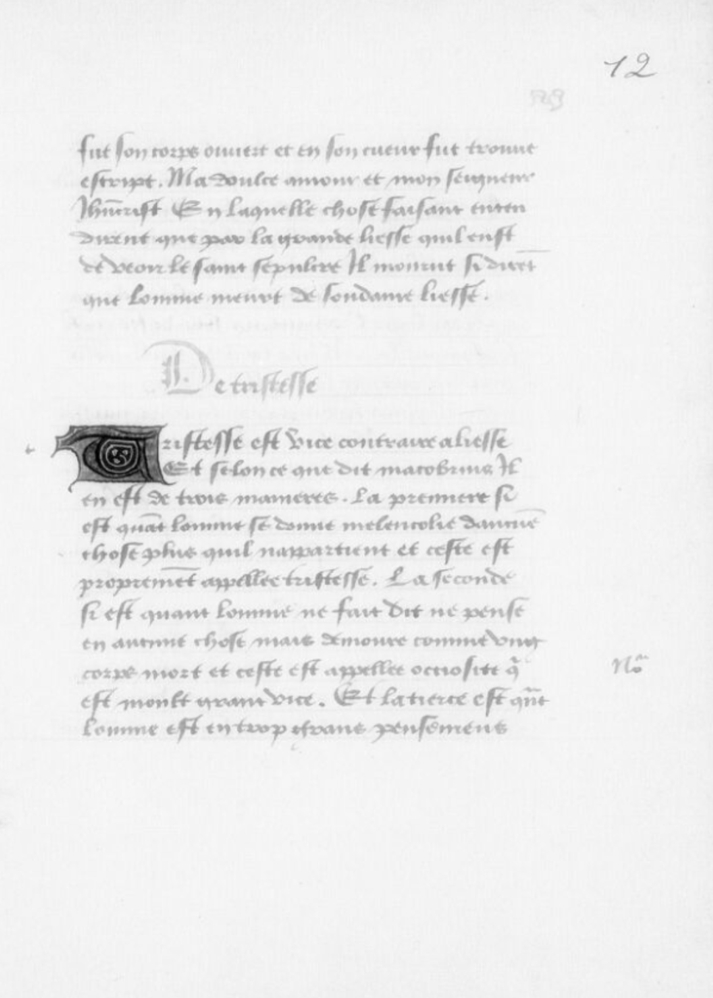 12
fut son corps ouuert et en son cueur fut trouue
escript. Ma doulce amour et mon seigneur
Jhūcrist En laquelle chose faisant enten
dirent que par la grande liesse quil eust
de veoir le saint sepulcre Il mourut si dirēt
que lomme meurt de soudaine liesse.
De tristesse
Tristesse est vice contraire a liesse
Et selon ce que dit macobrius Il
en est de trois manieres. La premiere si
est quāt lomme se donne melencolie daucūe
chose plus quil nappartient et ceste est
propremēt appellee tristesse. La seconde
si est quant lomme ne fait dit ne pense
en aucune chose mais demoure comme vng
corps mort et ceste est appellee occiosite q̄
est moult grant vice. Et la tierce est qn̄t
lomme est en trop grans pensemens
Noa